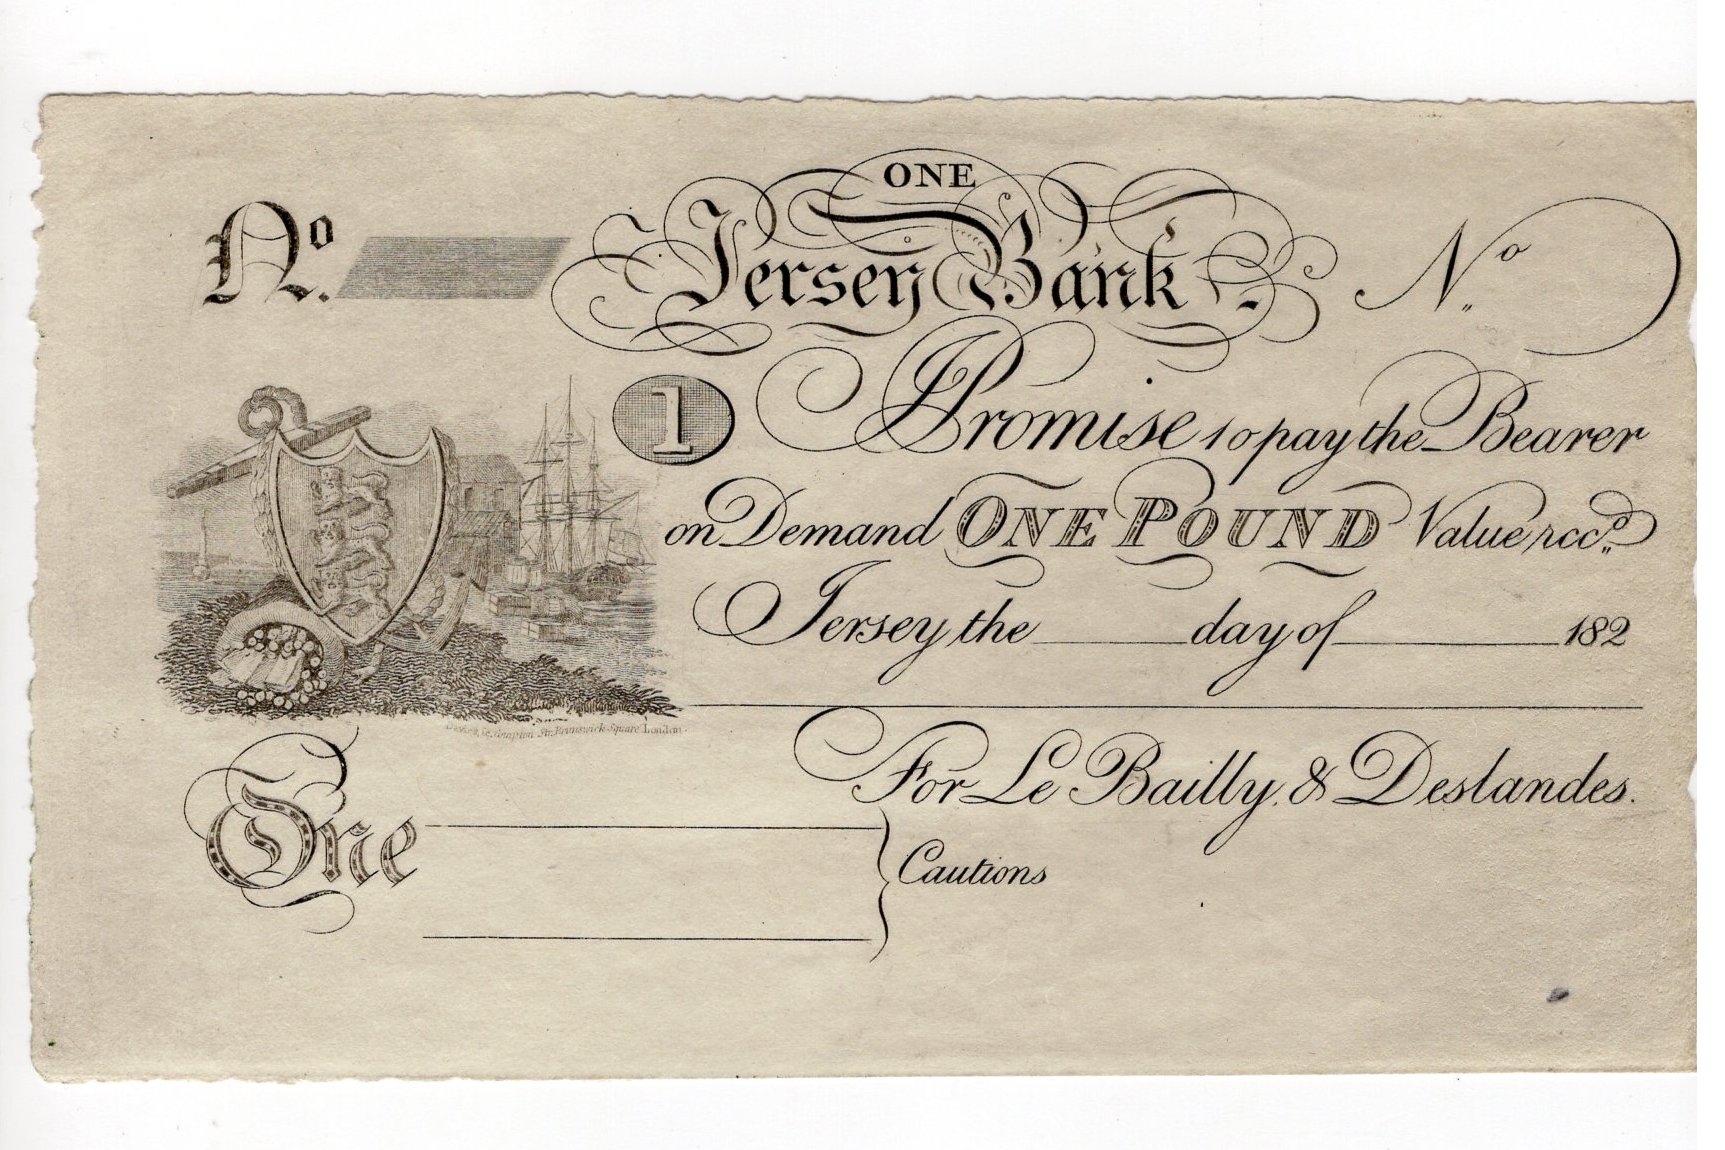 ONE
No. Jersey Bank No
1 I Promise to pay the Bearer
on Demand ONE POUND Value recd.
Jersey the day of 182
Compton Str. Brunswick Square London.
For Le Bailly & Deslandes.
One
Cautions